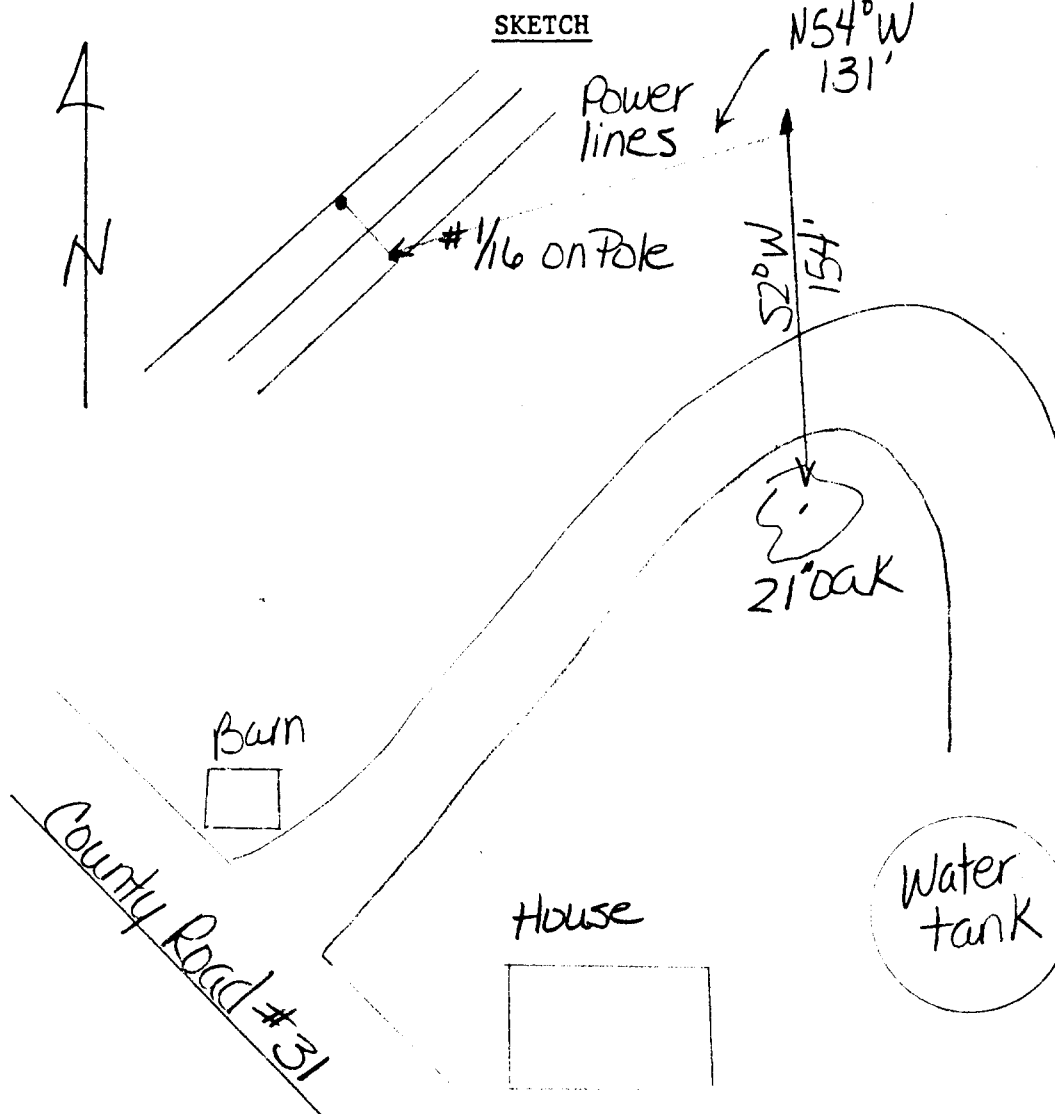 SKETCH
N54°W
131'
Power
lines
N
# 1/16 on Pole
S2°W
154'
21" oak
Barn
County Road #31
House
Water
tank